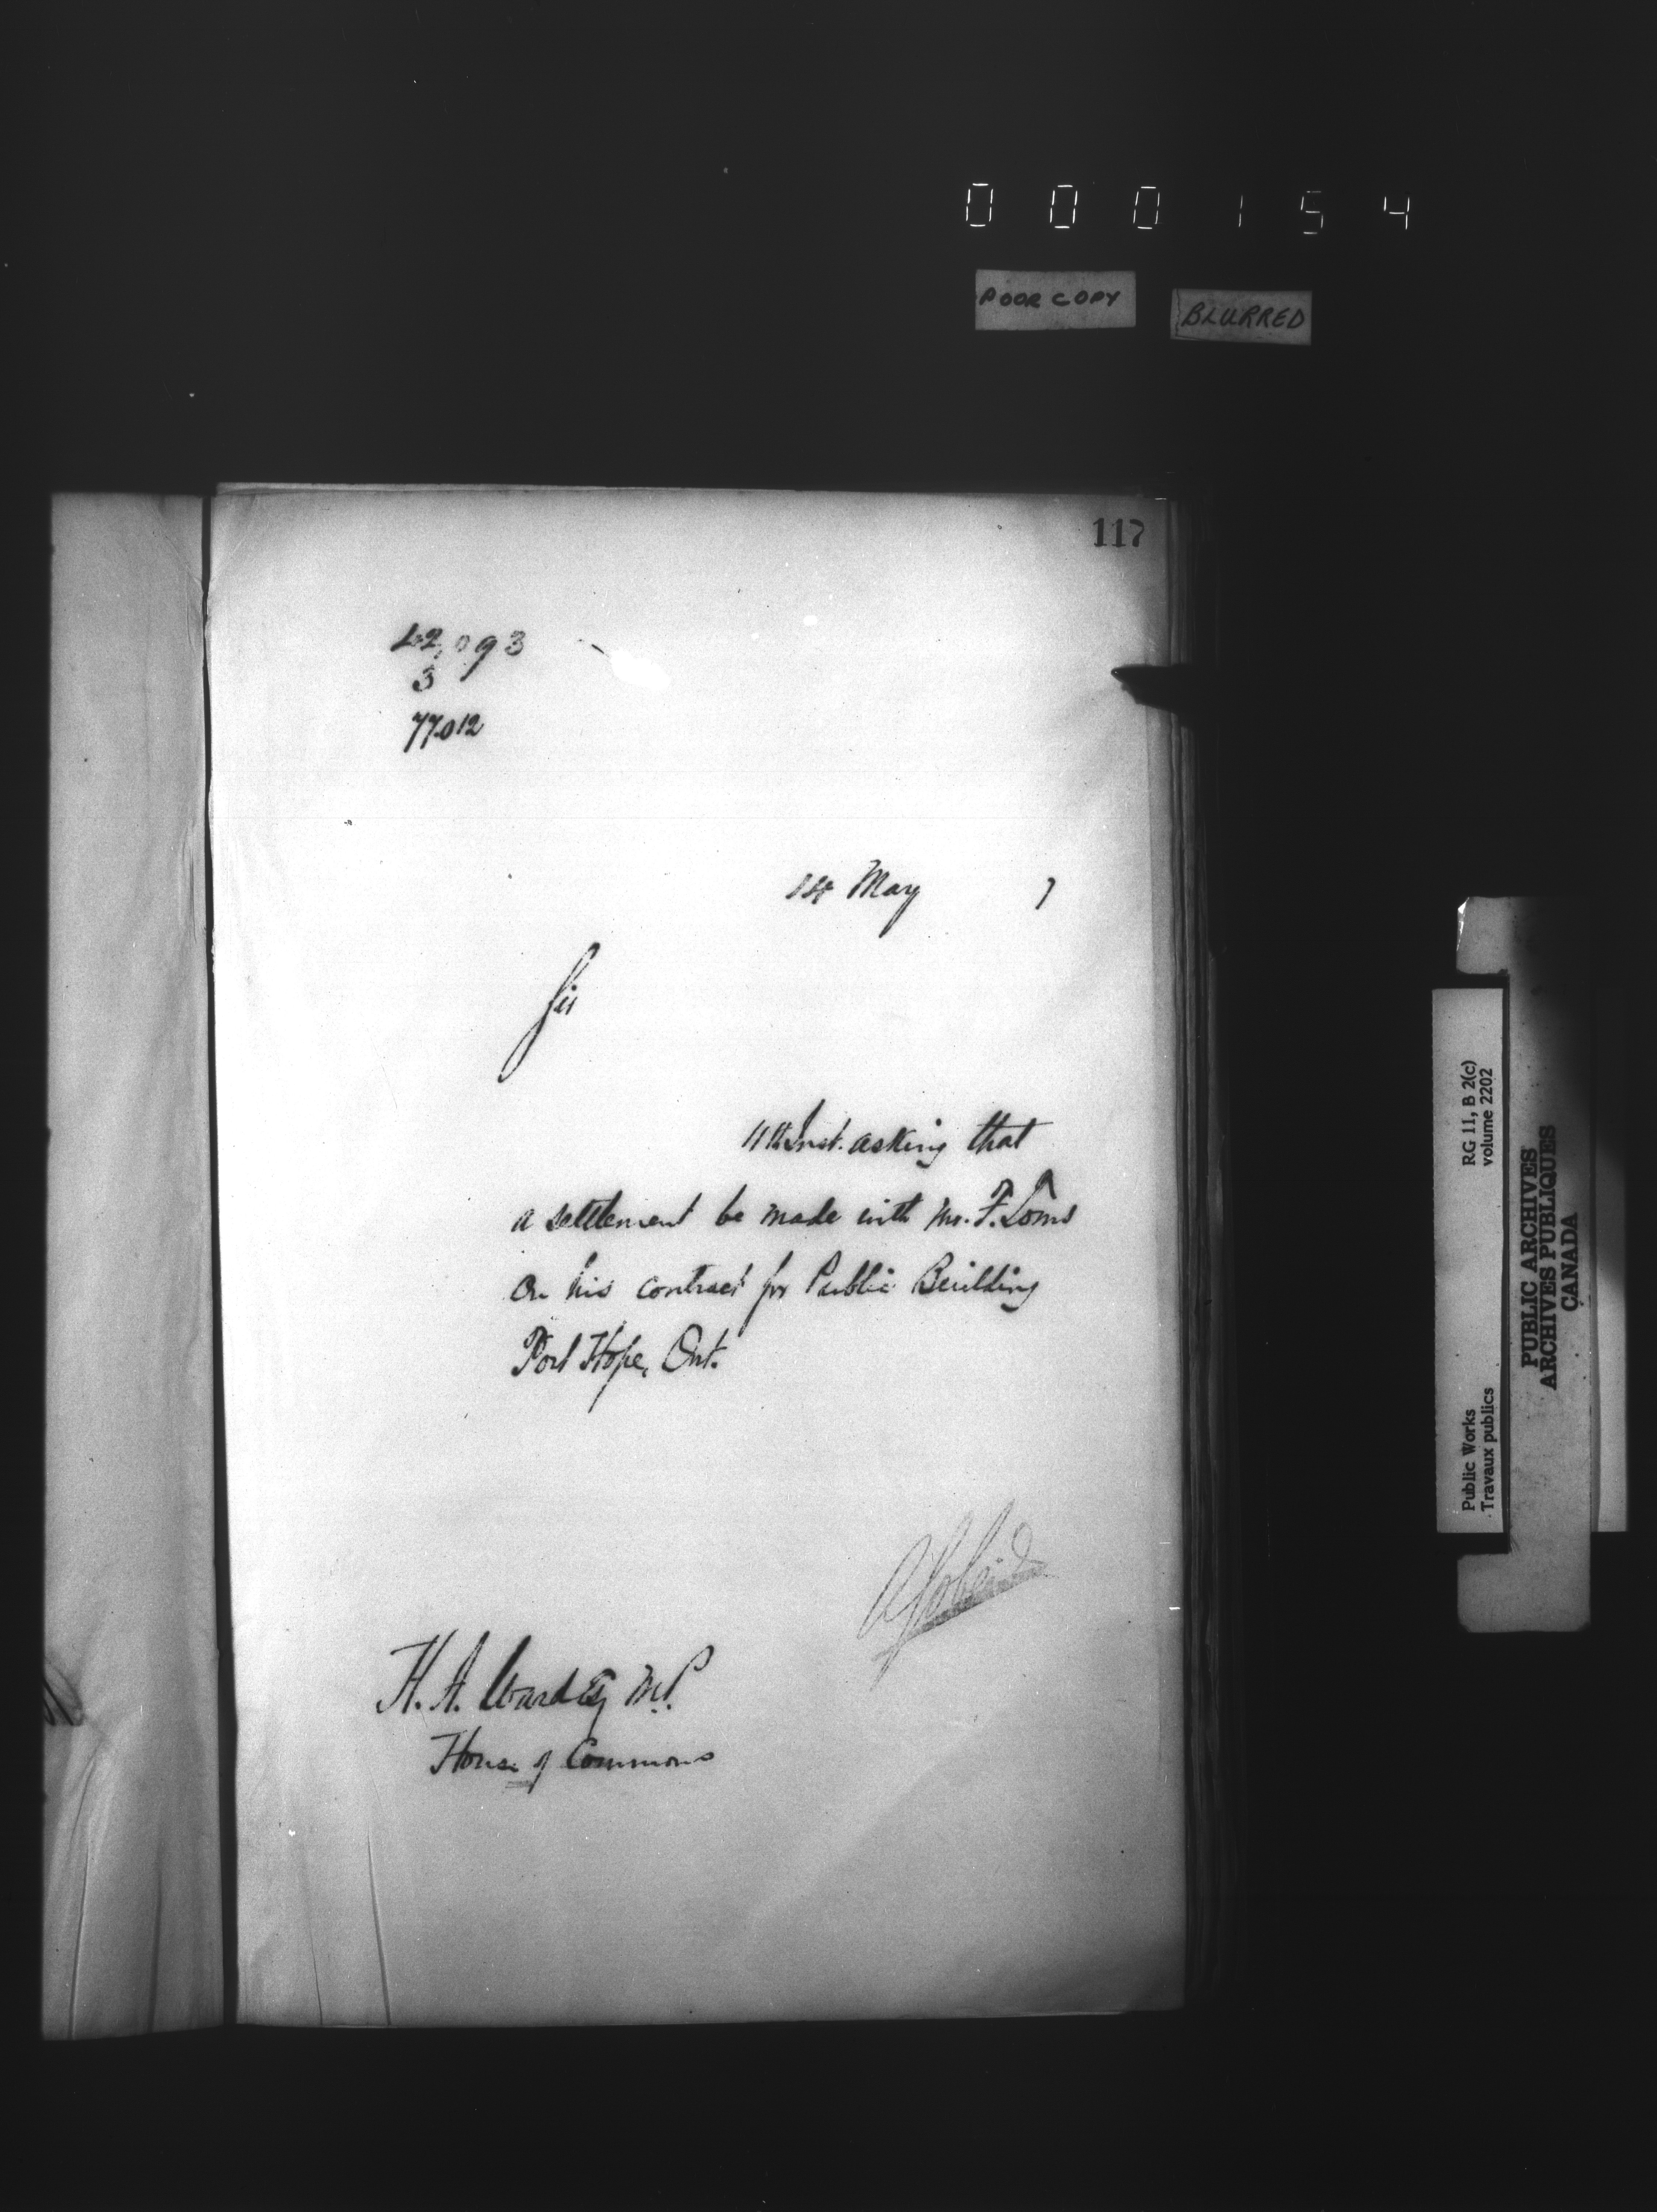 000154
POOR COPY
BLURRED
117
42,093
3
77012
14 May 7
Sir
11th Inst. asking that
a settlement be made with Mr. F. Toms
on his contract for Public Building
Port Hope, Ont.
H. A. Ward Esq M.P.
House of Commons
Public Works
Travaux publics
RG 11, B 2(c)
volume 2202
PUBLIC ARCHIVES
ARCHIVES PUBLIQUES
CANADA